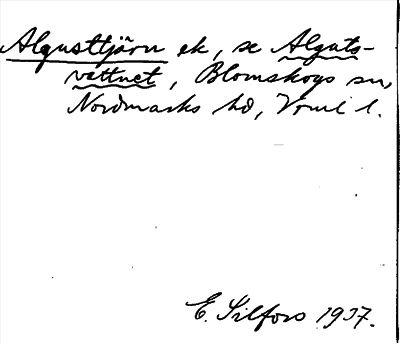 Algusttjärn ek, se Algats-
vattnet, Blomskogs sn,
Nordmarks hd, Vrml l.
E. Silfors 1937.